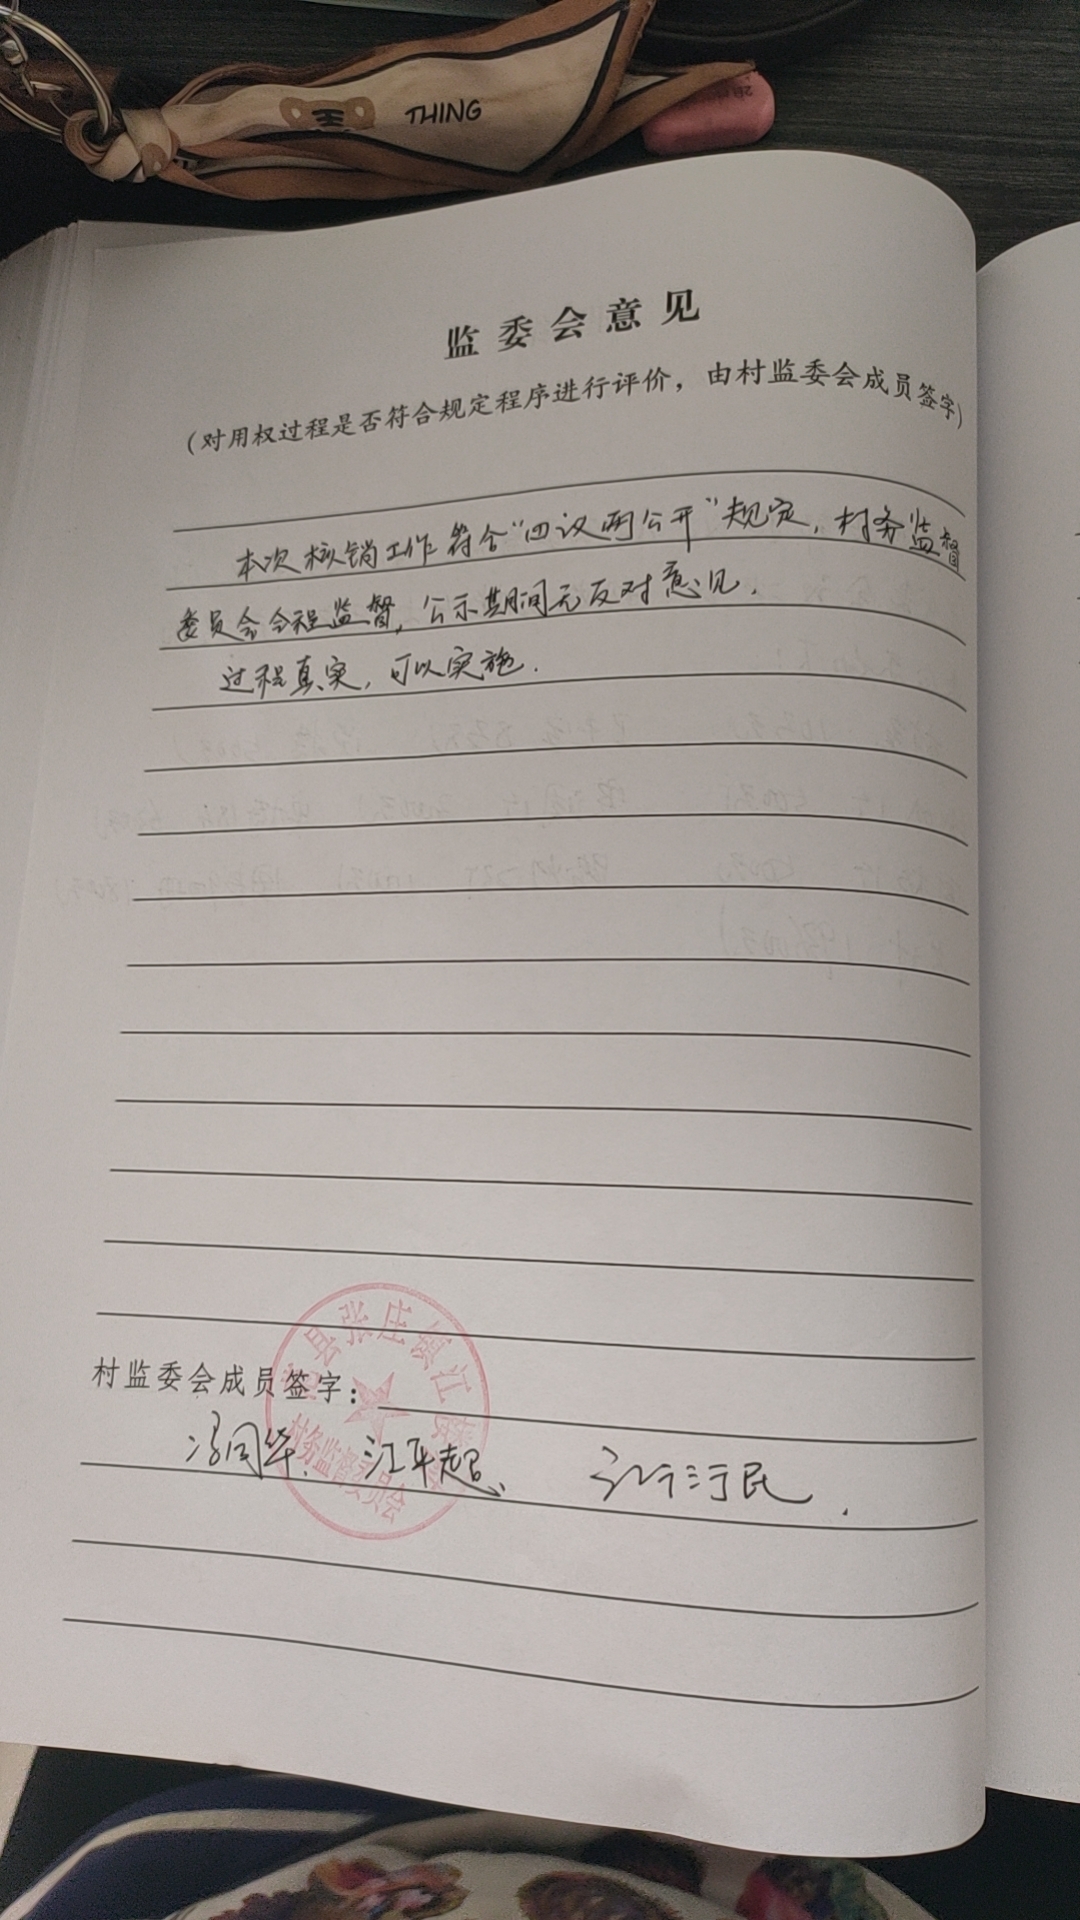 王
THING
监委会意见
（对用权过程是否符合规定程序进行评价，由村监委会成员签字）
本次核销工作符合“四议两公开”规定，村务监督
委员会全程监督，公示期间无反对意见．
过程真实，可以实施．
村监委会成员签字：
县张庄镇江
村务监督委员会
冯同华、江平超、